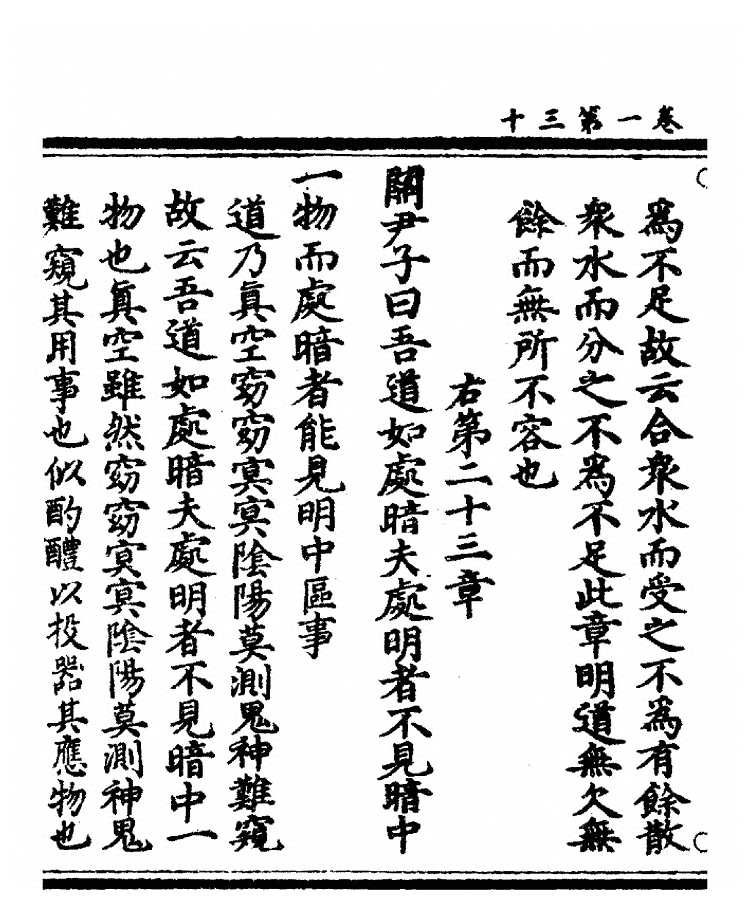 卷一第三十
為不足故云合衆水而受之不為有餘散
衆水而分之不為不足此章明道無欠無
餘而無所不容也
右第二十三章
關尹子曰吾道如處暗夫處明者不見暗中
一物而處暗者能見明中區事
道乃眞空窈窈冥冥陰陽莫測鬼神難窺
故云吾道如處暗夫處明者不見暗中一
物也眞空雖然窈窈冥冥陰陽莫測神鬼
難窺其用事也似酌醴以投器其應物也